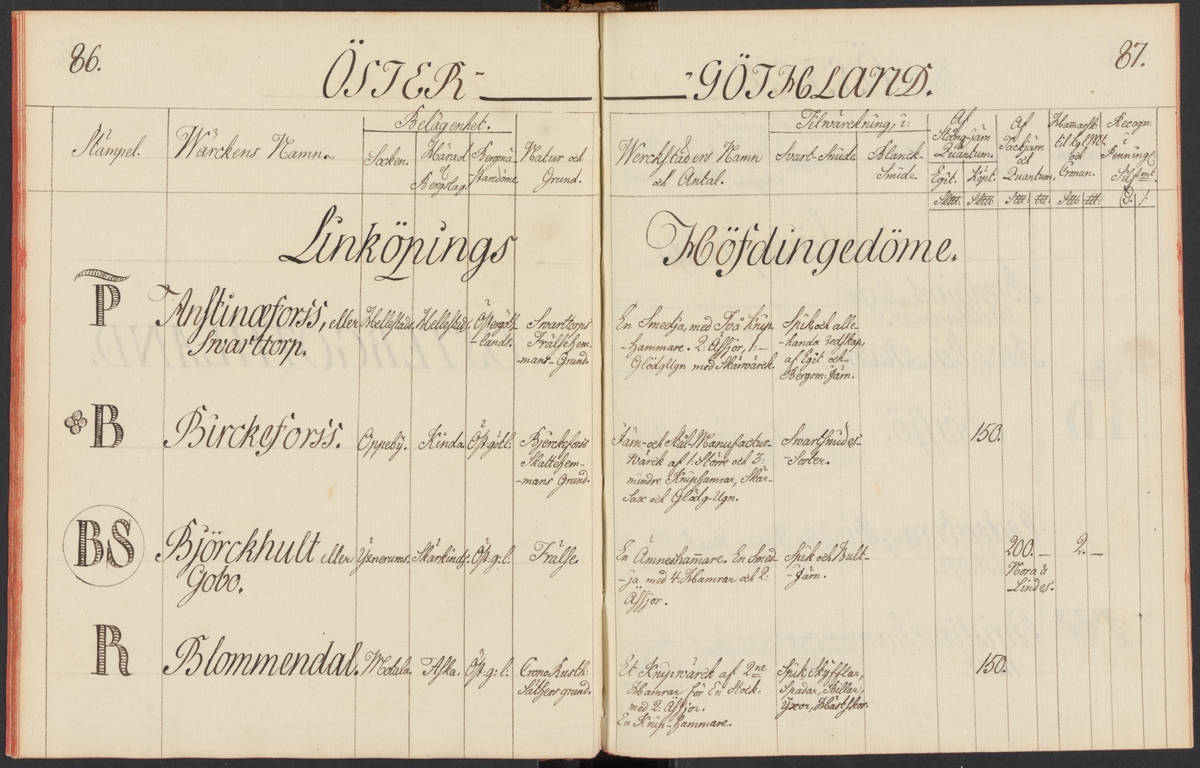 86.
ÖSTER-
-GÖTHLAND.
87.
Stämpel.
Wärckens Namn.
Belägenhet.
Socken.
Härad
&
Bergslag.
Bergmä-
staredöme.
Natur och
Grund.
Werckstäders Namn
och Antal.
Tilwärckning, i:
Svart-Smide
Blanck-
Smide.
Af
Stång-järn
Quantum.
Egit.
Köpt.
Af
Tackjärn
och
Quantum.
Hamarsk.
til
och
Cronan.
Recogn:
i
Penning
Silf mt.
Linköpings
Höfdingedöme.
P
Anstinæforss, eller
Svarttorp.
Hellestads.
Hellestads.
Östergöth-
lands.
Svarttorps
Frälsehem-
mans-Grund.
En Smedja, med Två Knip-
-hammare. 2. Äsjor, 1.-
GlödgUgn med Skärwärck.
Spik och alle-
handa redskap,
af Egit och
Bergsm: Järn.
B
Birckeforss.
Oppeby.
Kinda.
Öst.götl.
Björckeforss
Skattehem-
-mans Grund.
Järn- och Stål-Manufactur-
Wärck af 1. Större och 3.
mindre Kniphamrar, Skär-
Sax och Glödg-Ugn.
Svart Smides-
-Sorter.
150.
BS
Björckhult eller
Gobo.
Yxnerums.
Skärkinds.
Öst.g:l.
Frälse.
En Ämneshammare. En Smed-
-ja, med 4. Hamrar och 2.
Äsjor.
Spik och Bult-
-Järn.
200.—
Nora &
Lindes.
2.—
R
Blommendal.
Motala.
Aska.
Öst.g:l.
Crono Rusth:
Säthers grund.
Et Knipwärck af 2ne
Hamrar för En Stock
med 2. Äsjor.
En Knip-Hammare.
Spik, Skyfflar,
Spadar, Billar,
Yxor, Hästskor.
150.